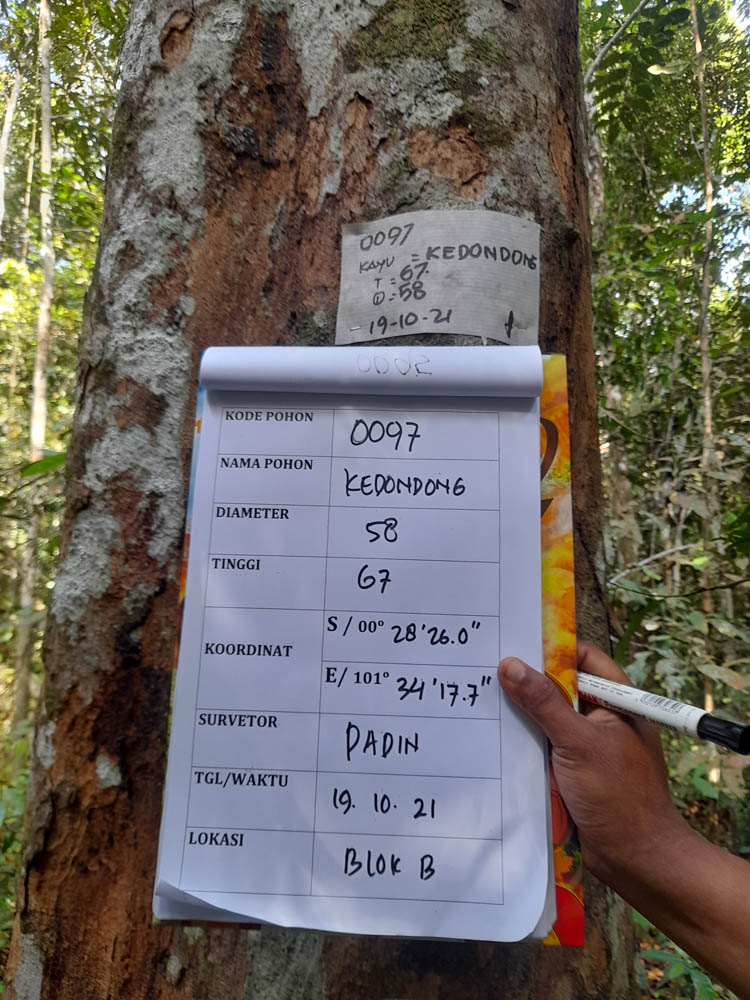 0097
KAYU = KEDONDONG
T = 67.
D = 58
19-10-21
0002
KODE POHON 0097
NAMA POHON KEDONDONG
DIAMETER 58
TINGGI 67
KOORDINAT S / 00° 28'26.0"
E/ 101° 34'17.7"
SURVETOR PADIN
TGL/WAKTU 19. 10. 21
LOKASI BLOK B